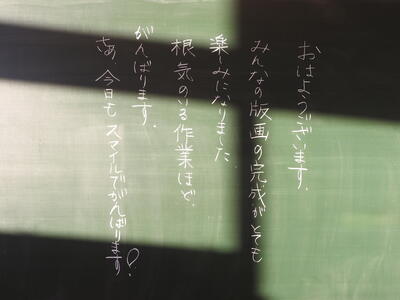 おはようございます。
みんなの版画の完成がとても
楽しみになりました。
根気のいる作業ほど、
がんばります。
さあ、今日もスマイルでがんばります！